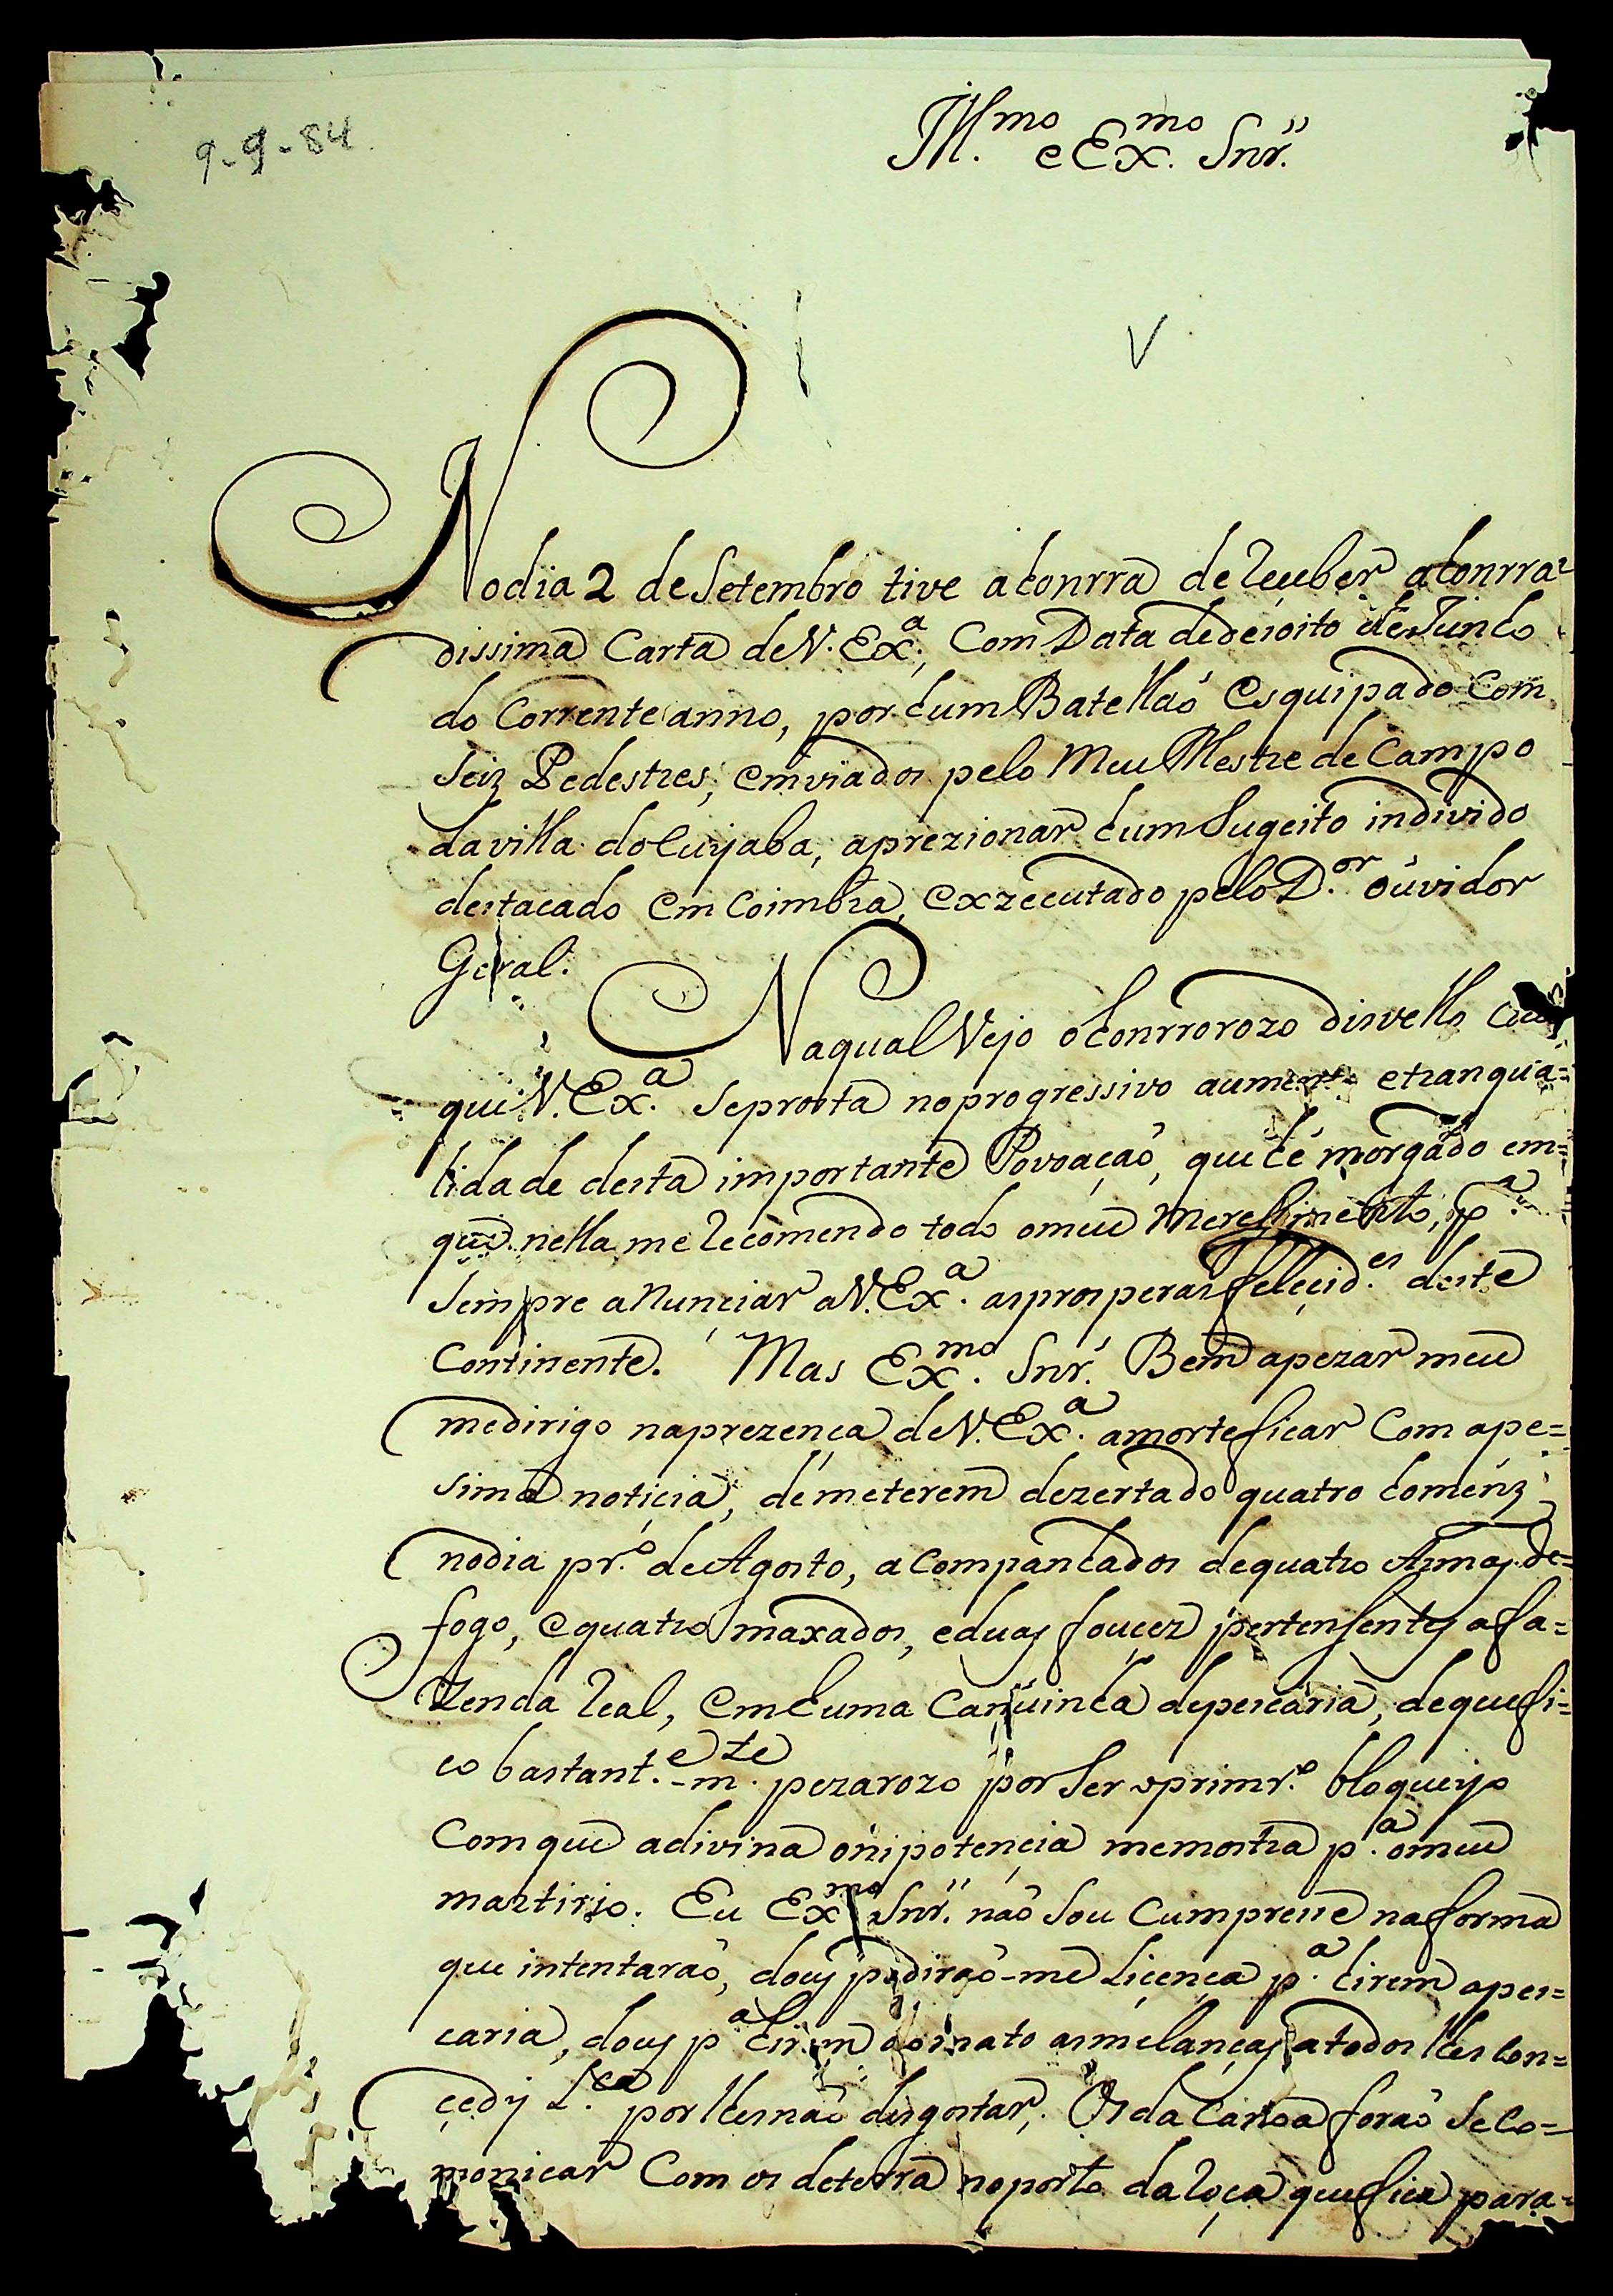 9-9-84.
Ill.mo e Ex.mo Snr.
V
No dia 2 de Setembro tive a honrra de receber a honrra=
dissima Carta de V. Ex.a, Com Data de dezoito de Junho
do Corrente anno, por hum Batelhaõ esquipado Com
Seiz Pedestres, emviados pelo Meu Mestre de Campo
da vilha do Cuyaba, aprezionar hum Sugeito individo
destacado em Coimbra, exzecutado pelo D.or ouvidor
Geral.
Na qual Vejo o honrrorozo disvelho
que V. Ex.a Seprosta no progressivo aumento e tranqui=
lidade desta importante Povoaçaõ, que hé morgado em=
que nelha me recomendo todo o meu Meressimento, p.a
Sempre anunciar a V. Ex.a as prosperas felecid.es deste
Continente. Mas Ex.mo Snr. Bem apezar meu
me dirigo na prezença de V. Ex.a amorteficar Com a pe=
sima noticia, de me terem dezertado quatro homenz
no dia pr.o de Agosto, acompanhados de quatro Armas de=
fogo, e quatro maxados, e duas foucez pertensentes a fa=
Zenda real, em huma Canuinha de pescaria, de que fi=
co bastant.e-m.te pezarozo por Ser o primr.o bloqueyo
Com que a divina onipotencia me mostra p.a o meu
martirio. Eu Ex.mo Snr. naõ Sou Cumpresse na forma
que intentaraõ, dous pediraõ-me Licença p.a hirem a pes=
caria, dous p.a hirem ao mato as melanças a todos lhes Con=
cedy L.ca por lhes naõ disgostar, Os da Canoa foraõ Se Co=
monicar Com os de terra no porto da roça que fica para=